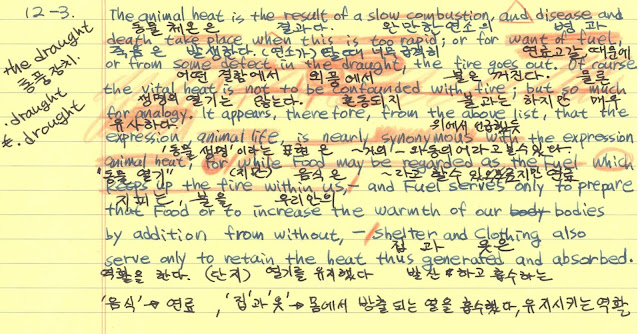 12-3.
The animal heat is the result of a slow combustion, and disease and
동물 체온은 결과다. 완만한 연소의 병 과
death take place when this is too rapid; or for want of fuel,
죽음은 발생한다. (연소가) 연료고갈 때문에
the draught
통풍장치.
or from some defect in the draught, the fire goes out. Of course
어떤 결함에서 통풍에서 불은 꺼진다. 물론
the vital heat is not to be confounded with fire; but so much
생명의 열기는 않는다. 혼동되지 불과는 하지만 매우
.draught
for analogy. It appears, therefore, from the above list, that the
유사하다. 위에서 언급했듯
drought
expression, animal life, is nearly synonymous with the expression
'동물 생명'이라는 표현은 ~거의 ~와 동의어라고 할 수 있다.
animal heat; for while Food may be regarded as the Fuel which
"동물 열기" (지만) 음식은 ~라고 할 수 있 연료
keeps up the fire within us, — and Fuel serves only to prepare
지피는, 불을 우리안의
that Food or to increase the warmth of our body bodies
by addition from without, — shelter and Clothing also
집 과 옷은
serve only to retain the heat thus generated and absorbed.
역할을 한다. (단지) 열기를 유지했다 발산 하고 흡수하는
'음식' → 연료 , '집'과 '옷' → 몸에서 방출 되는 열을 흡수했다, 유지시키는 역할